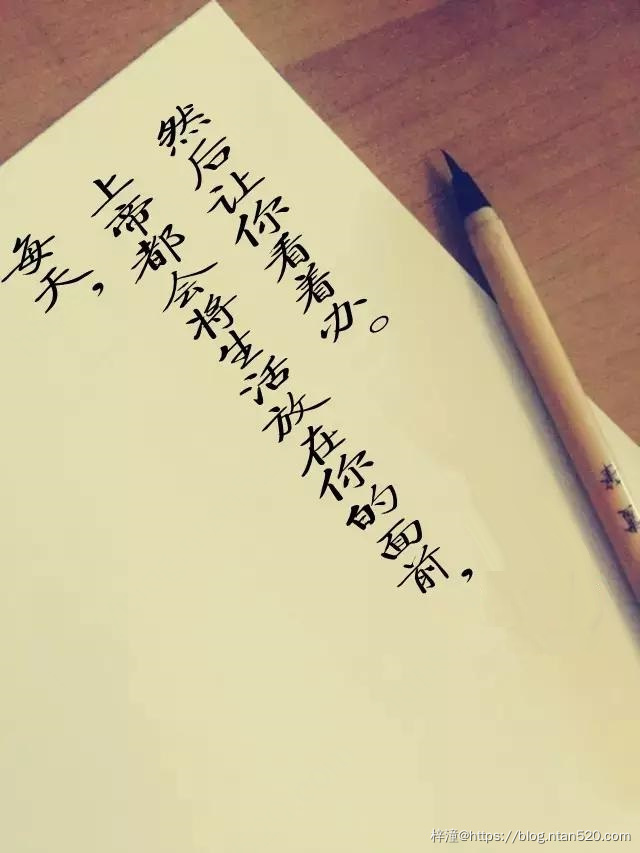 每天，
上帝都会将生活放在你的面前，
然后让你看着办。
梓潼@https://blog.ntan520.com